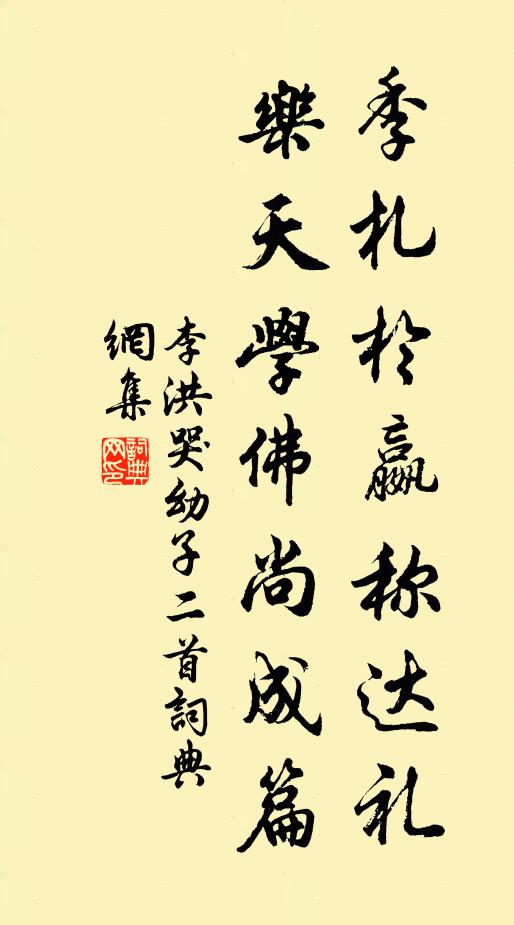 季札於嬴称达礼
樂天學佛尚成篇
李洪哭幼子二首詞典
網集
詞典
网印